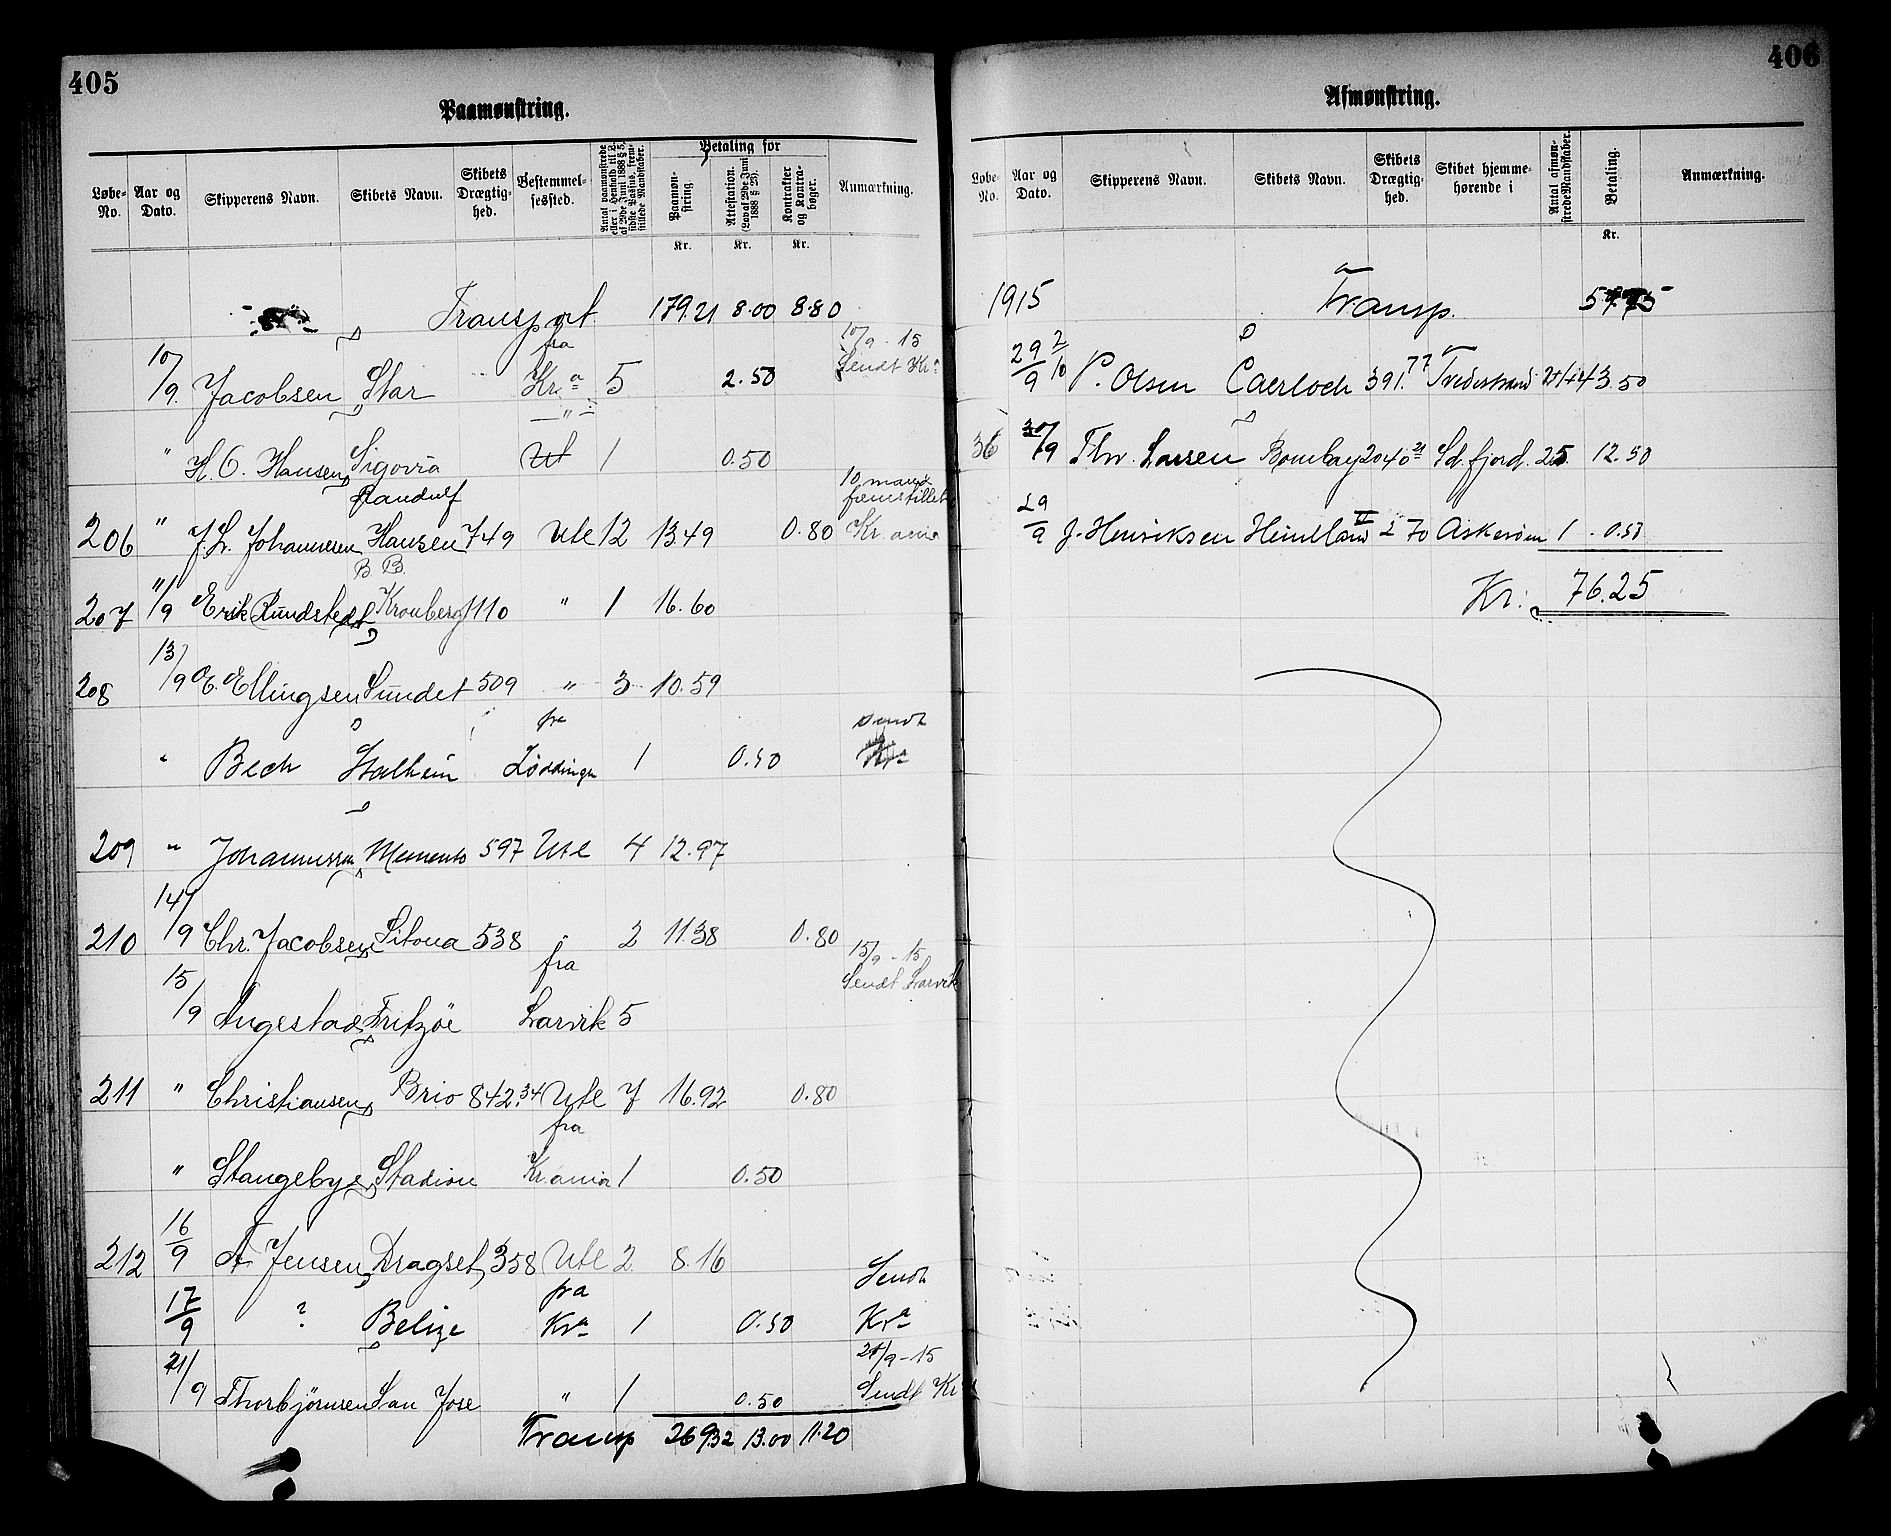 405
Paamønstring.
Løbe-No. Aar og Dato. Skipperens Navn. Skibets Navn. Skibets Drægtighed. Bestemmelsessted. Antal paamønstrede eller i Henhold til L. af 29de Juni 1888 § 5, sidste Passus, fremstillede Mandskaber. Betaling for Paamønstring. Attestation. (Lov af 29de Juni 1888 § 25). Kontrakter og Kontrabøger. Anmærkning.
Kr. Kr. Kr.
Transport 179.21 8.00 8.80
10/9 Jacobsen Star fra Kra 5 2.50 10/9-15 Sendt Kra
" H. O. Hansen Sigovia Utl 1 0.50
206 " J. L. Johannesen Hansen 749 Utl 12 13.49 0.80 10 mand fremstillet Kr.ania
207 11/9 Erik Rundstedt Kronberg 1110 " 1 16.60
208 13/9 E. Ellingsen Sundet 509 " 3 10.59
" Bech Stalheim fra Løddingen 1 0.50 Sendt Kra
209 " Johannessen Memento 597 Utl 4 12.97
210 14/9 Chr. Jacobsen Sitona 538 " 2 11.38 0.80
15/9 Augestad Fritzöe fra Larvik 5 15/9-15 Sendt Larvik
211 " Christiansen Brio 842.34 Utl 7 16.92 0.80
" Stangebye Stadion fra Kr.ania 1 0.50
212 16/9 A Jensen Dragset 358 Utl 2 8.16
17/9 ? Belize fra Kra 1 0.50 Sendt Kra
21/9 Thorbjörnsen San Jose " 1 0.50 21/9-15 Sendt Kr
Transp 269.32 13.00 11.20
406
Afmønstring.
Løbe-No. Aar og Dato. Skipperens Navn. Skibets Navn. Skibets Drægtighed. Skibet hjemmehørende i Antal afmønstrede Mandskaber. Betaling. Anmærkning.
Kr.
1915 Transp.
29/9 2/10 P. Olsen Caerloch 391.77 Tvedestrand 3.50
36 30/9 Thv. Larsen Bombay 2040 Sd.fjord. 25 12.50
29/9 J. Henriksen Heimland II 270 Askerøen 1 0.50
Kr: 76.25